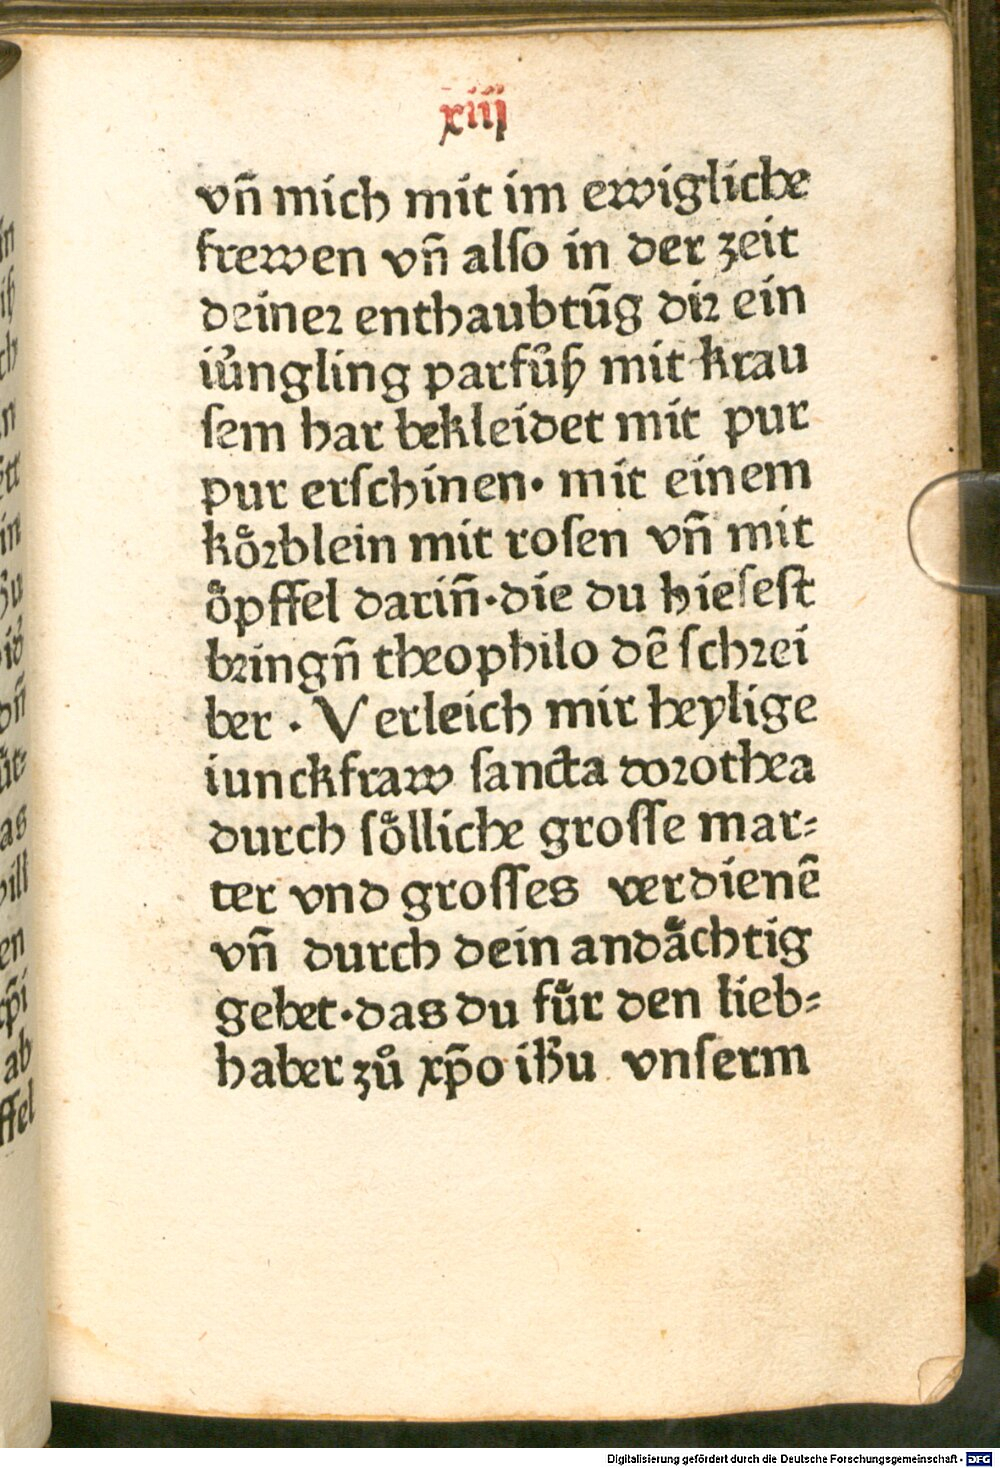 xiij
vn̄ mich mit im ewigliche
frewen vn̄ alſo in der zeit
deiner enthaubtūg dir ein
iu̍ngling parfu̍ſʒ mit krau
ſem har bekleidet mit pur
pur erſchinen· mit einem
koͤrblein mit roſen vn̄ mit
oͤpffel darin̄·die du hieſeſt
bringn̄ theophilo dē ſchrei
ber · Verleich mir heylige
iunckfraw ſancta dorothea
durch ſoͤlliche groſſe mar⸗
ter vnd groſſes verdienē
vn̄ durch dein andaͤchtig
gebet·das du fuͤr den lieb⸗
haber zuͦ xp̄o ih̄u vnſerm
Digitalisierung gefördert durch die Deutsche Forschungsgemeinschaft - DFG